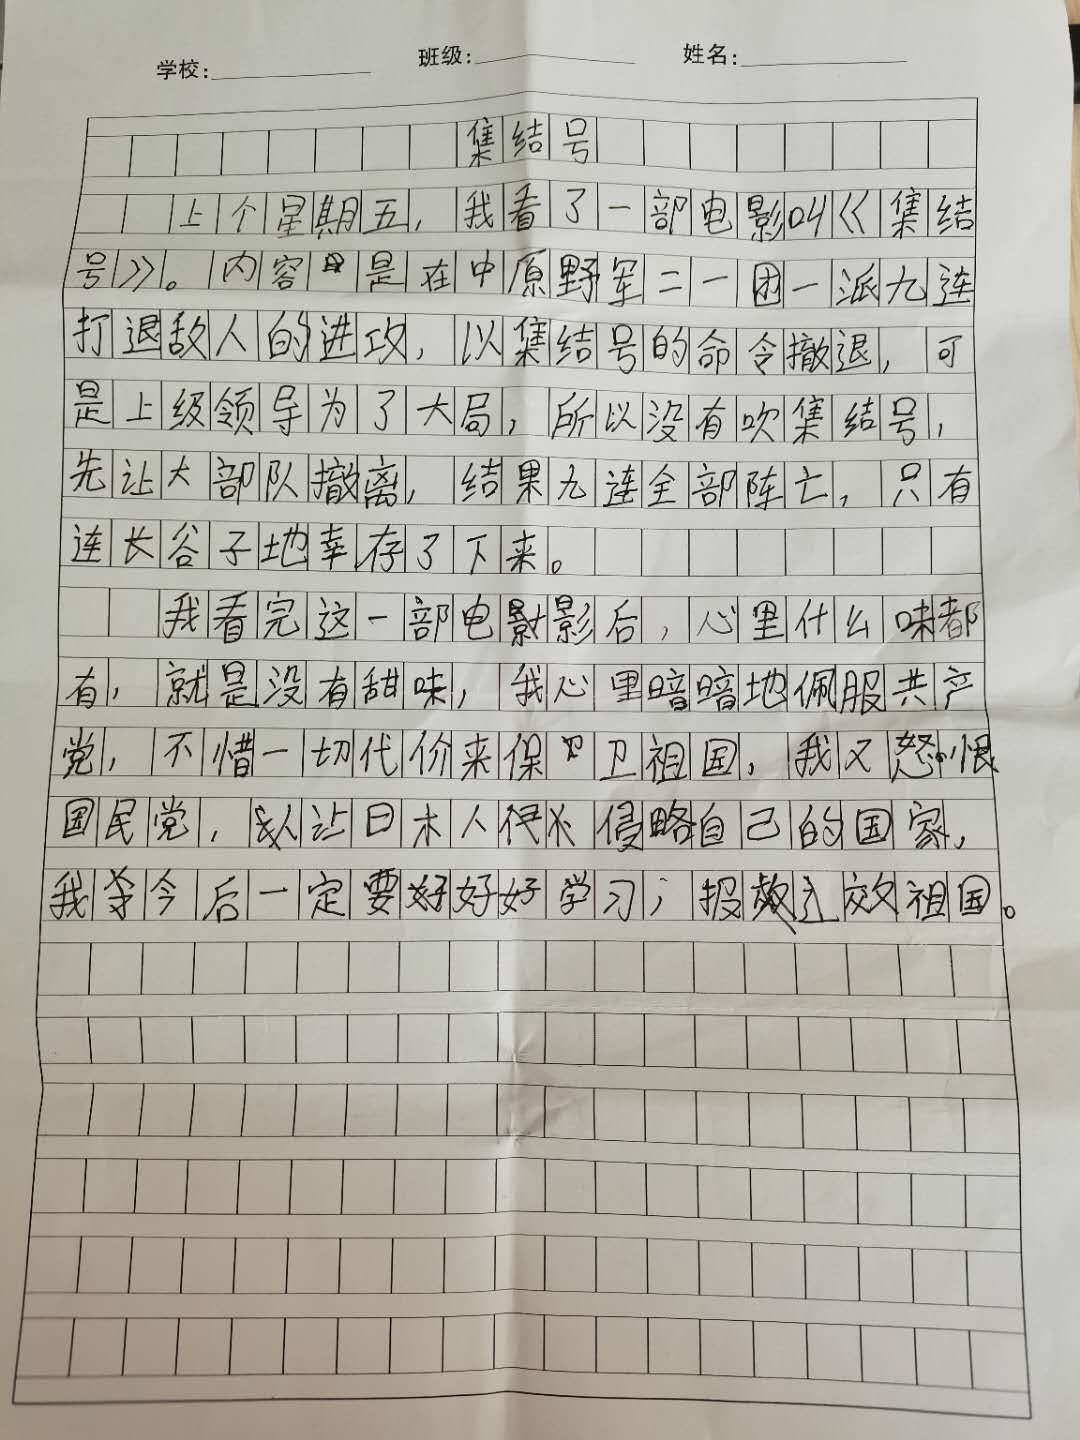 学校： 班级： 姓名：
集结号
上个星期五，我看了一部电影叫《集结
号》。内容是在中原野军二一团一派九连
打退敌人的进攻，以集结号的命令撤退，可
是上级领导为了大局，所以没有吹集结号，
先让大部队撤离，结果九连全部阵亡，只有
连长谷子地幸存了下来。
我看完这一部电影后，心里什么味都
有，就是没有甜味，我心里暗暗地佩服共产
党，不惜一切代价来保卫祖国，我又怒恨
国民党，让日木人侵略自己的国家，
我今后一定要好好学习；报效祖国。